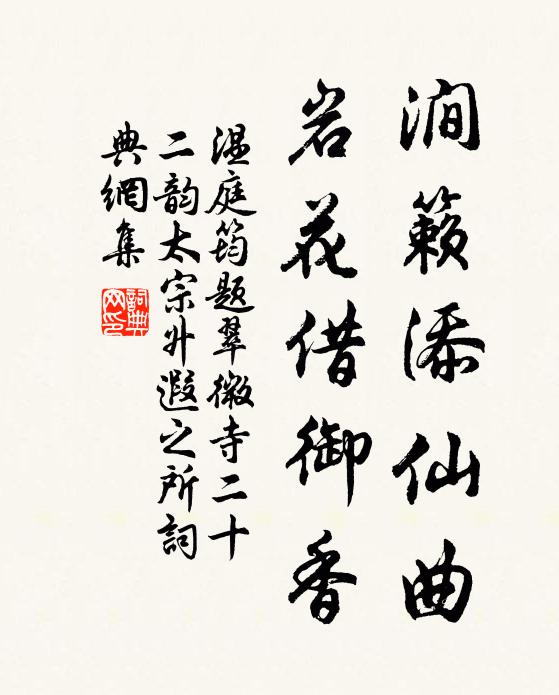 澗籟添仙曲
岩花借御香
温庭筠題翠微寺二十
二韵太宗升遐之所詞
典網集
詞典网印